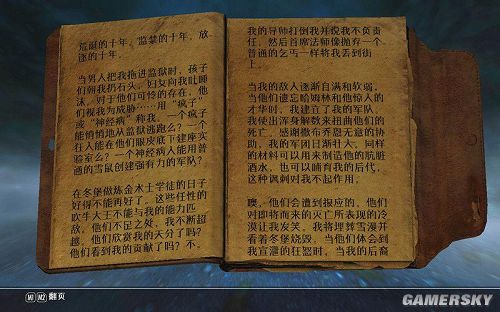 荒诞的十年，监禁的十年，放
逐的十年。
当男人把我拖进监狱时，孩子
们朝我扔石头，妇女向我吐唾
沫。对于他们可怜的存在，他
们视我为威胁……用“疯子”
或“神经病”称我。一个疯子
能悄悄地从监狱逃跑么？一个
狂人能在他们眼皮底下建座实
验室么？一个神经病人能用普
通的雪鼠创建强有力的军队？
在冬堡做炼金术士学徒的日子
好得不能再好了。这些任性的
吹牛大王不能与我的能力匹
敌，他们不足之处，我不断超
越。他们欣赏我的天分了吗？
他们看到我的贡献了吗？不。
我的导师打倒我并说我不负责
任，然后首席法师像抛弃一个
普通的乞丐一样将我丢到街
上。
当我的敌人逐渐自满和软弱，
当他们遗忘哈姆林和他惊人的
才华时，我建立了我的军队。
我使出浑身解数来扭曲他们的
死亡。感谢撒布乔恩无意的协
助，我的军团日渐壮大。同样
的材料可以用来制造他的肮脏
酒水，也可以哺育我的后代，
这种讽刺对我不起作用。
噢，他们会遭到报应的，他们
对即将而来的灭亡所表现的冷
漠让我发笑。我将埋葬雪漫并
看着冬堡烧毁，当他们体会到
我宣泄的狂怒时，当我的后裔
M1 M2 翻页
GAMERSKY